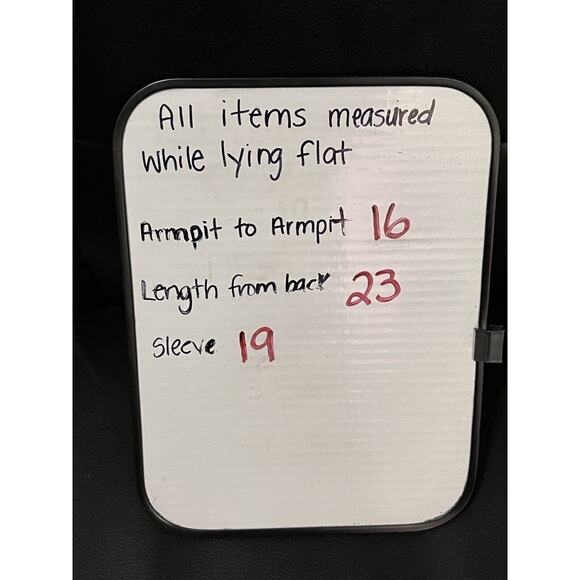 All items measured
while lying flat
Armpit to Armpit 16
Length from back 23
Sleeve 19